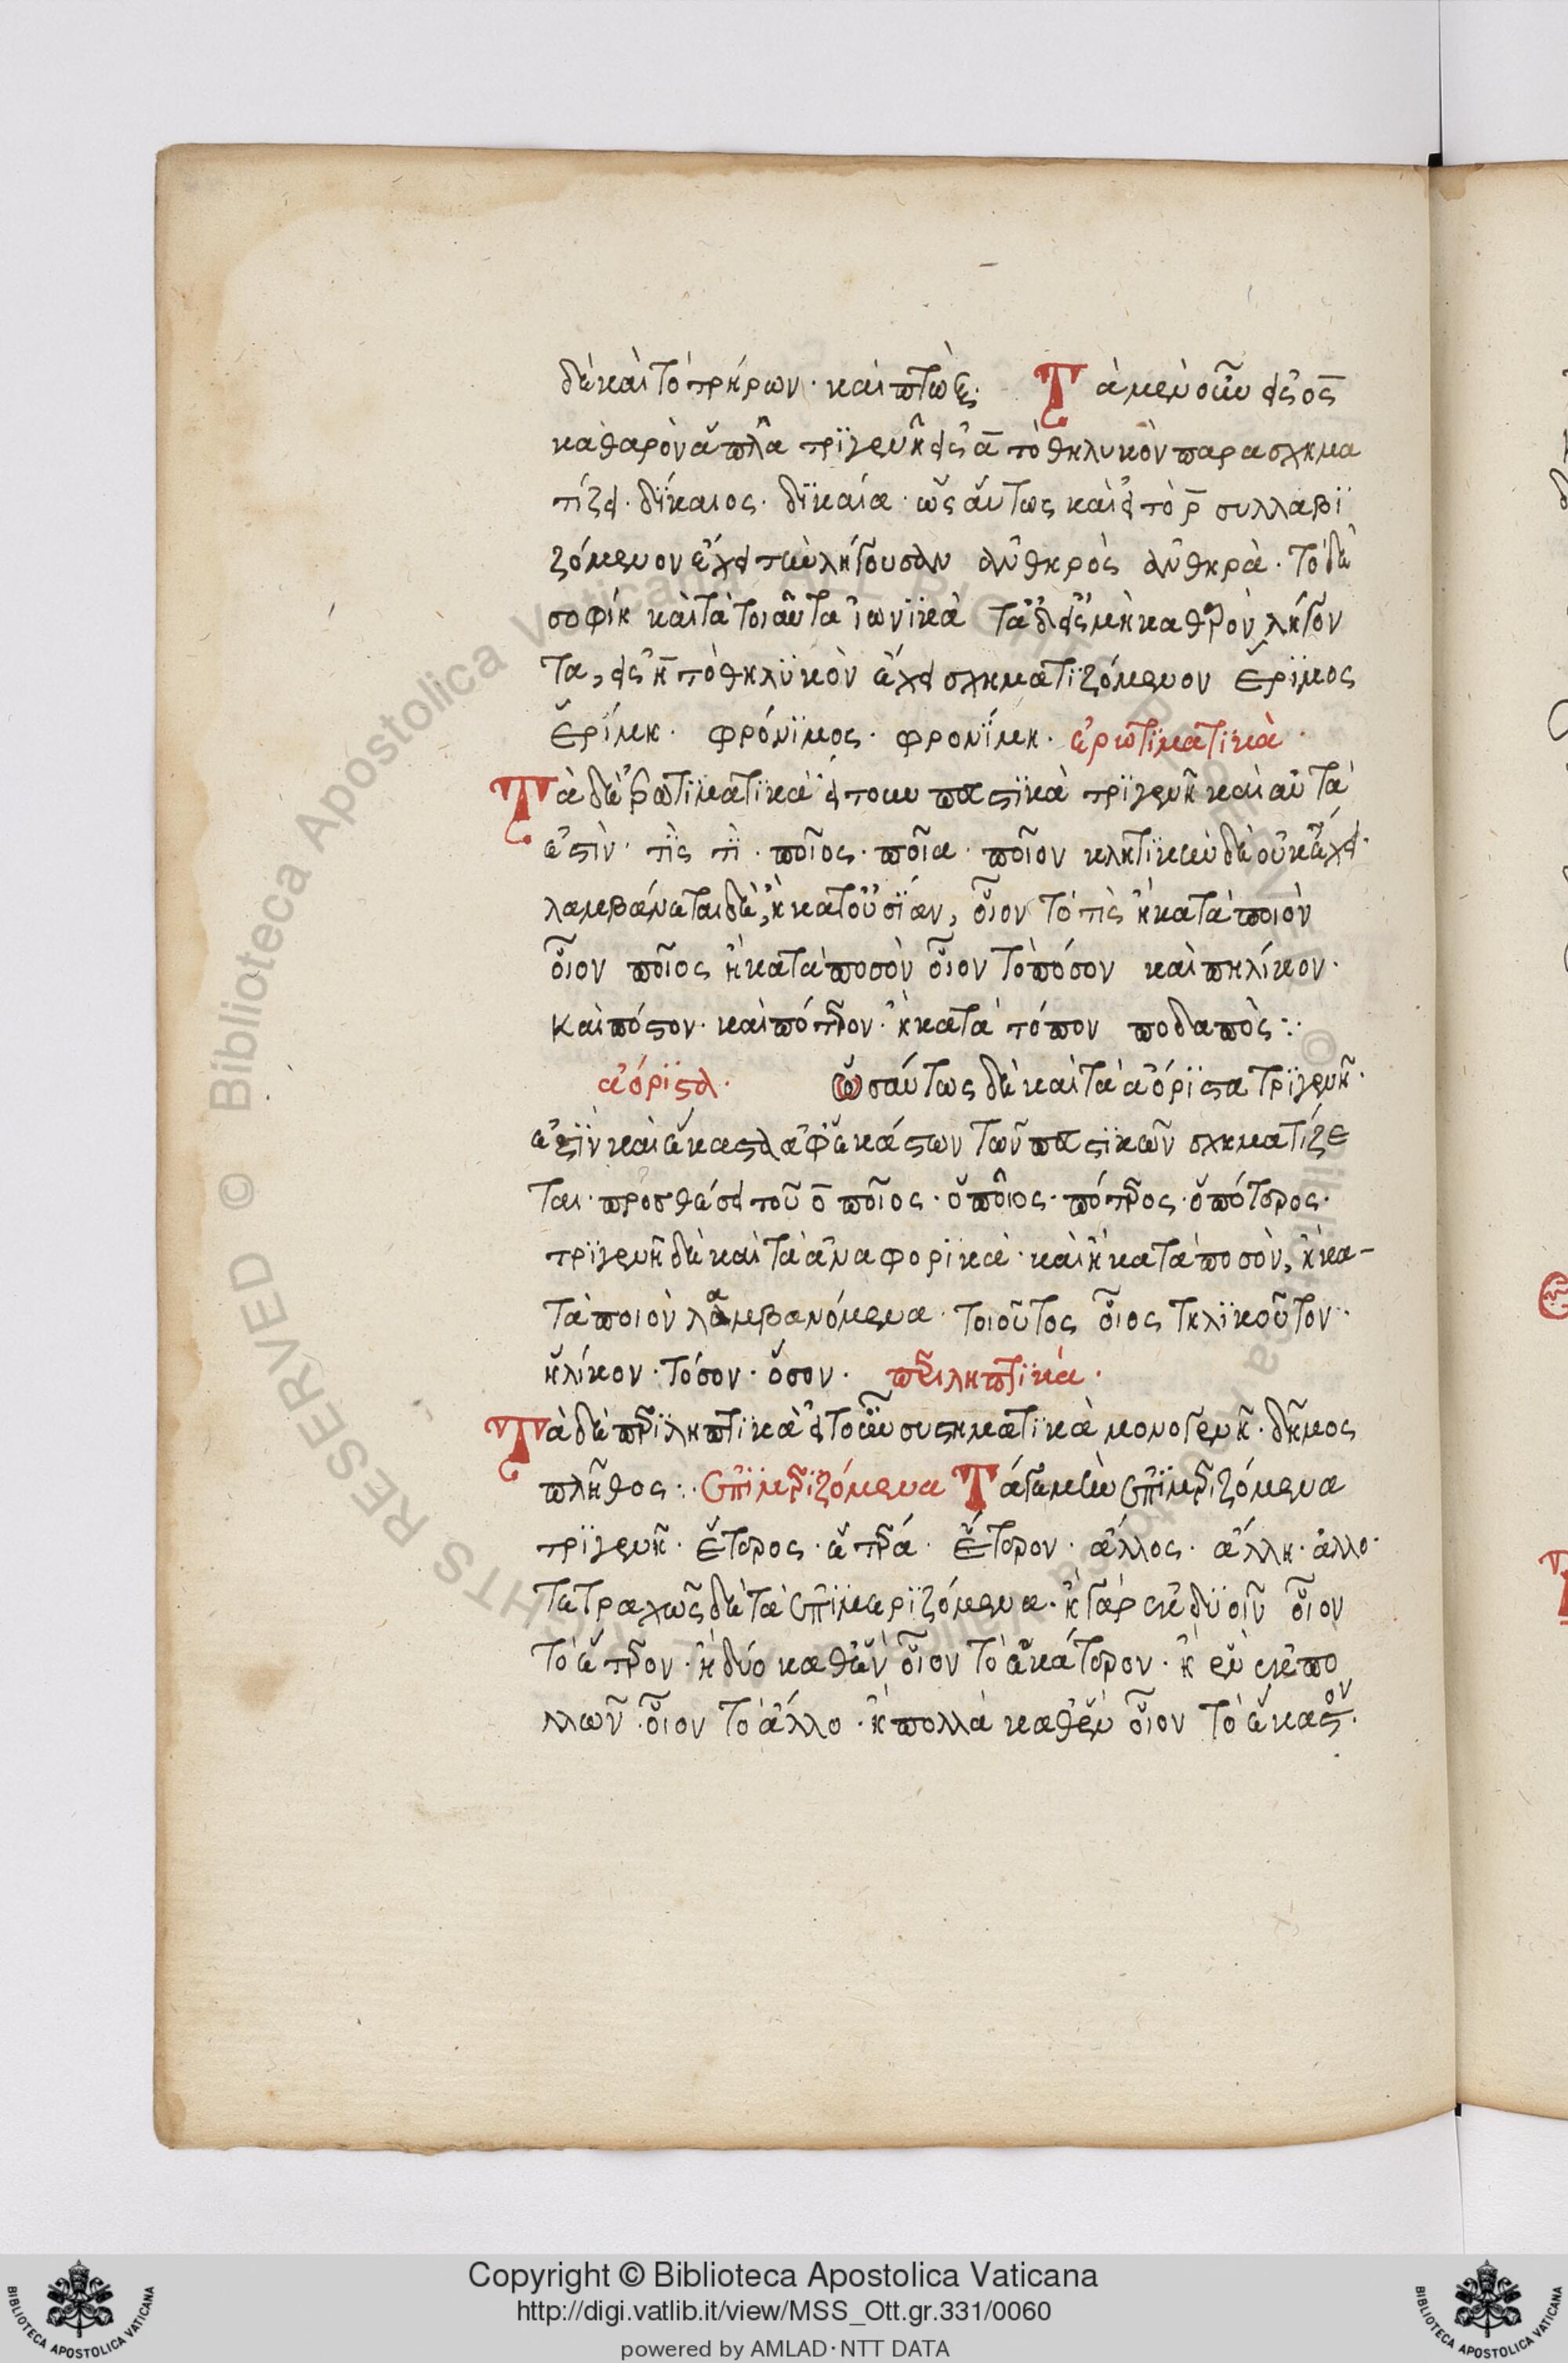 δὲ καὶ τὸ τρήρων· καὶ πτὼξ· Τὰ μὲν οὖν εἰς ος
καθαρὸν ἁπλᾶ τριγενῆ εἰς α τὸ θηλυκὸν παρασχημα
τίζει· δίκαιος· δικαία· ὡς αὕτως καὶ εἰ τὸ ρ συλλαβι
ζόμενον ἔχει τὼ λήγουσαν ἀνθηρὸς ἀνθηρὰ· Τὸ δὲ
σοφίη καὶ τὰ τοιαῦτα ἰωνικὰ τὰ δ εἰς μὴ καθαρὸν λήγον
τα, εἰς η τὸ θηλυκὸν ἔχει σχηματιζόμενον ἔριμος
ἐρίμη· φρόνιμος· φρονίμη· ἐρωτιματικὰ·
Τὰ δὲ ἐρωτιματικὰ ἤτοι πευστικὰ τριγενῆ καὶ αὐτά
ἐστὶν· τὶς τὶ· ποῖος· ποῖα· ποῖον κλητικὼ δὲ οὐκ ἔχει·
λαμβάνεται δὲ, ἢ κατ οὐσίαν, οἷον τὸ τὶς ἢ κατὰ ποιὸν
οἷον ποῖος ἢ κατὰ ποσὸν οἷον τὸ πόσον καὶ πηλίκον·
καὶ πόστον· καὶ πότερον· ἢ κατὰ τόπον ποδαπὸς:·
ἀόριστα· ὡσαύτως δὲ καὶ τὰ ἀόριστα τριγενῆ·
ἐστὶν καὶ ἕκαστα ἀφ ἑκάστων τῶν πευστικῶν σχηματίζε
ται· προσθέσει τοῦ ο ποῖος· ὁποῖος· πότερος· ὁπότερος·
τριγενῆ δὲ καὶ τὰ ἀναφορικὰ· καὶ ἢ κατὰ ποσὸν, ἢ κα-
τὰ ποιὸν λαμβανόμενα· τοιοῦτος οἷος τηλικοῦτον··
ἡλίκον· τόσον· ὅσον· περιληπτικά·
Τὰ δὲ περιληπτικὰ ἤτοι οὖν συστηματικὰ μονογενῆ· δῆμος
πλῆθος:· ἐπιμεριζόμενα Τά γε μὲν ἐπιμεριζόμενα
τριγενῆ· ἕτερος· ἑτέρά· ἕτερον· ἄλλος· ἄλλη· ἄλλο·
τετραχῶς δὲ τὰ ἐπιμεριζόμενα· ἢ γὰρ ἐκ δυοῖν οἷον
τὸ ἕτερον· ἢ δύο καθ ἓν οἷον τὸ ἑκάτερον· ἢ ἓν ἐκ πο
λλῶν· οἷον τὸ ἄλλο· ἢ πολλὰ καθ ἓν οἷον τὸ ἕκαστον·
Copyright © Biblioteca Apostolica Vaticana
http://digi.vatlib.it/view/MSS_Ott.gr.331/0060
powered by AMLAD·NTT DATA